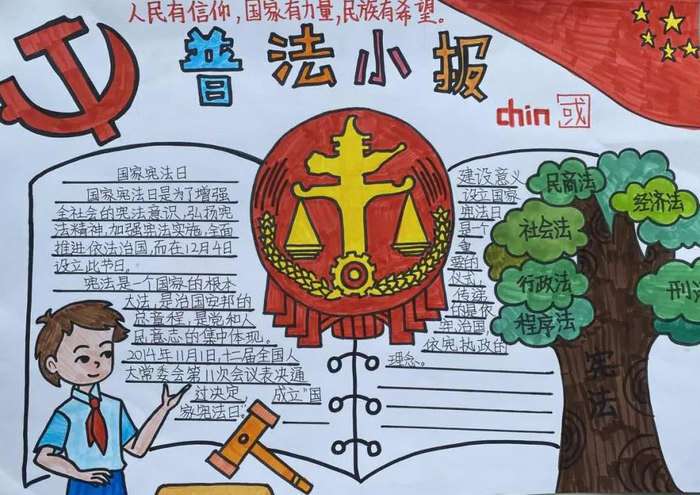 人民有信仰,国家有力量,民族有希望。
普法小报
chin国
国家宪法日
国家宪法日是为了增强
全社会的宪法意识,弘扬宪
法精神,加强宪法实施,全面
推进依法治国,而在12月4日
设立此节日。
宪法是一个国家的根本
大法,是治国安邦的
总章程,是党和人
民意志的集中体现。
2014年11月1日,十二届全国人
大常委会第11次会议表决通
过决定, 成立"国
家宪法日"
建设意义
设立国家
宪法日
是一个
重
要的
仪式,
传递
的是依
宪治国,
依宪执政的
理念。
民商法
经济法
社会法
行政法
程序法
刑法
宪法